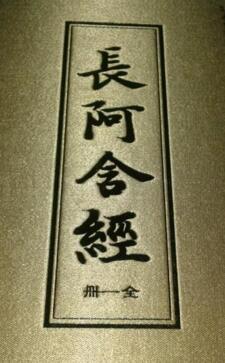 長阿含經
全一册